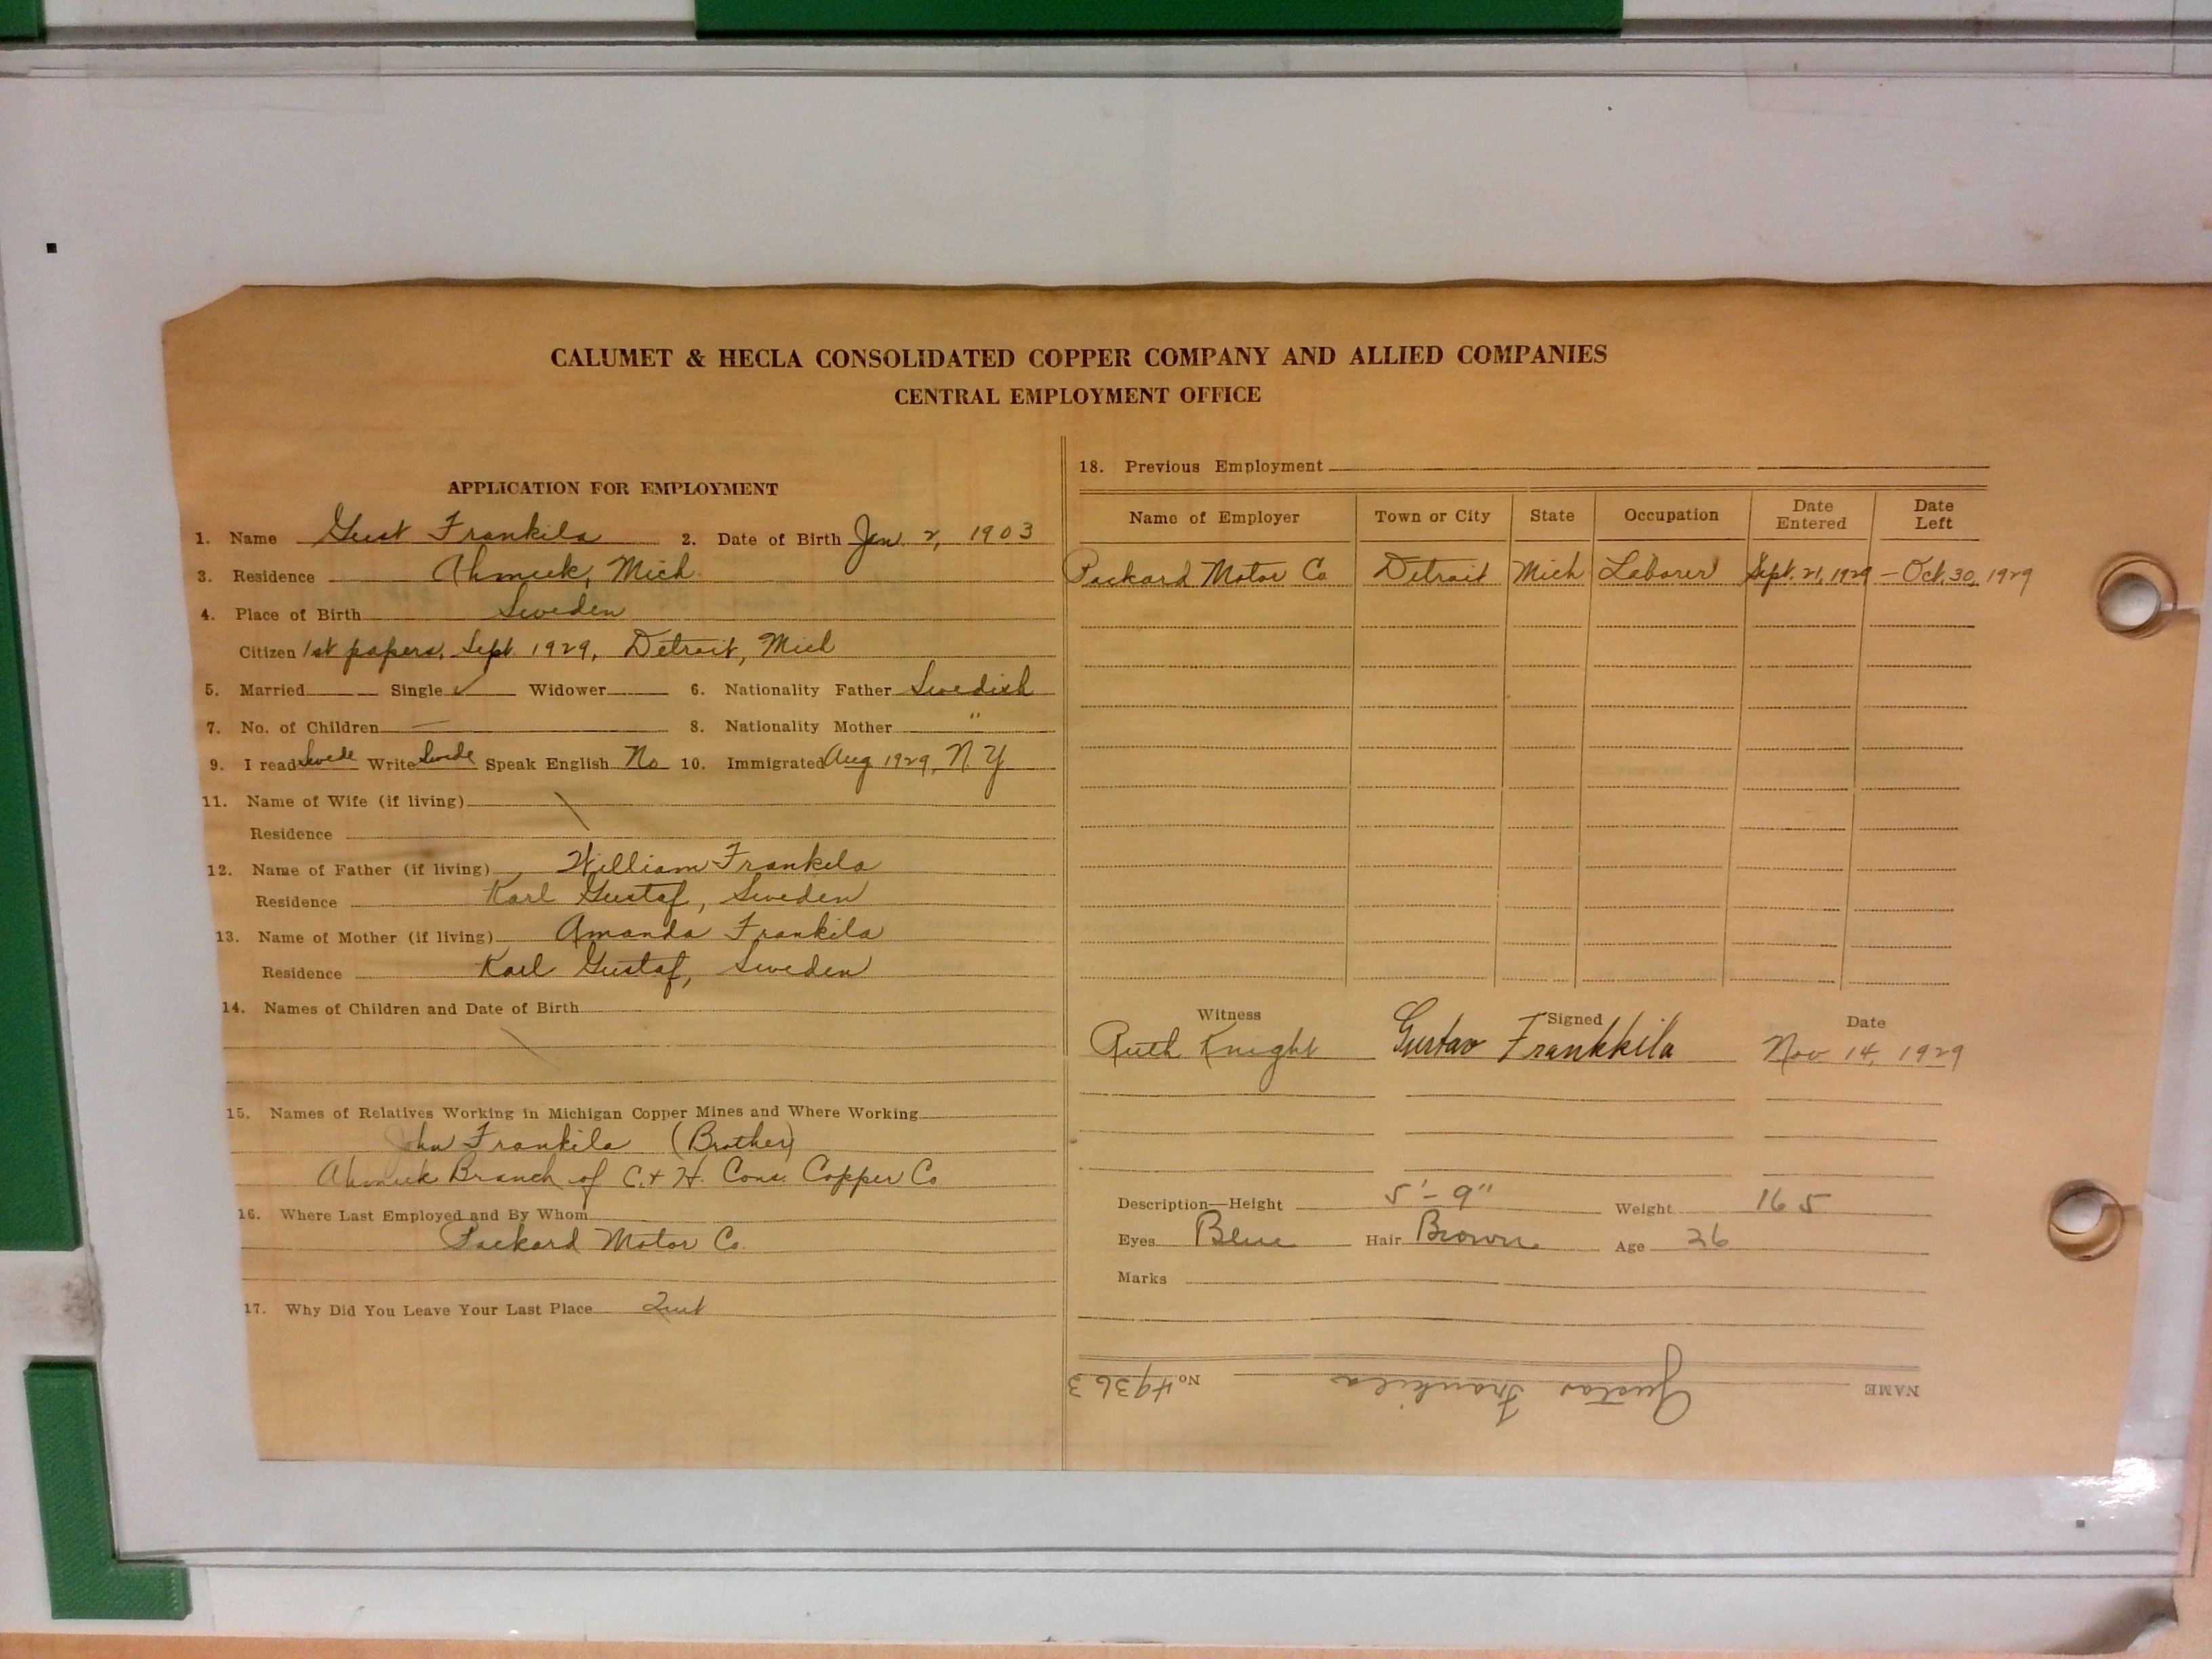 CALUMET & HECLA CONSOLIDATED COPPER COMPANY AND ALLIED COMPANIES
CENTRAL EMPLOYMENT OFFICE
APPLICATION FOR EMPLOYMENT
1. Name Gust Frankila 2. Date of Birth Jan. 2, 1903
3. Residence Ahmeek, Mich.
4. Place of Birth Sweden
Citizen 1st papers, Sept. 1929, Detroit, Mich
5. Married Single ✓ Widower 6. Nationality Father Swedish
7. No. of Children — 8. Nationality Mother "
9. I read Swede Write Swede Speak English No 10. Immigrated Aug 1929, N.Y.
11. Name of Wife (if living)
Residence
12. Name of Father (if living) William Frankila
Residence Karl Gustaf, Sweden
13. Name of Mother (if living) Amanda Frankila
Residence Karl Gustaf, Sweden
14. Names of Children and Date of Birth
15. Names of Relatives Working in Michigan Copper Mines and Where Working
John Frankila (Brother)
Ahmeek Branch of C. & H. Cons. Copper Co
16. Where Last Employed and By Whom
Packard Motor Co.
17. Why Did You Leave Your Last Place Quit
18. Previous Employment
Name of Employer Town or City State Occupation Date Entered Date Left
Packard Motor Co Detroit Mich Laborer Sept. 21, 1929 – Oct. 30, 1929
Witness Signed Date
Ruth Knight Gustav Frankkila Nov 14, 1929
Description—Height 5'–9" Weight 165
Eyes Blue Hair Brown Age 26
Marks
NAME Gustav Frankila No. 49363